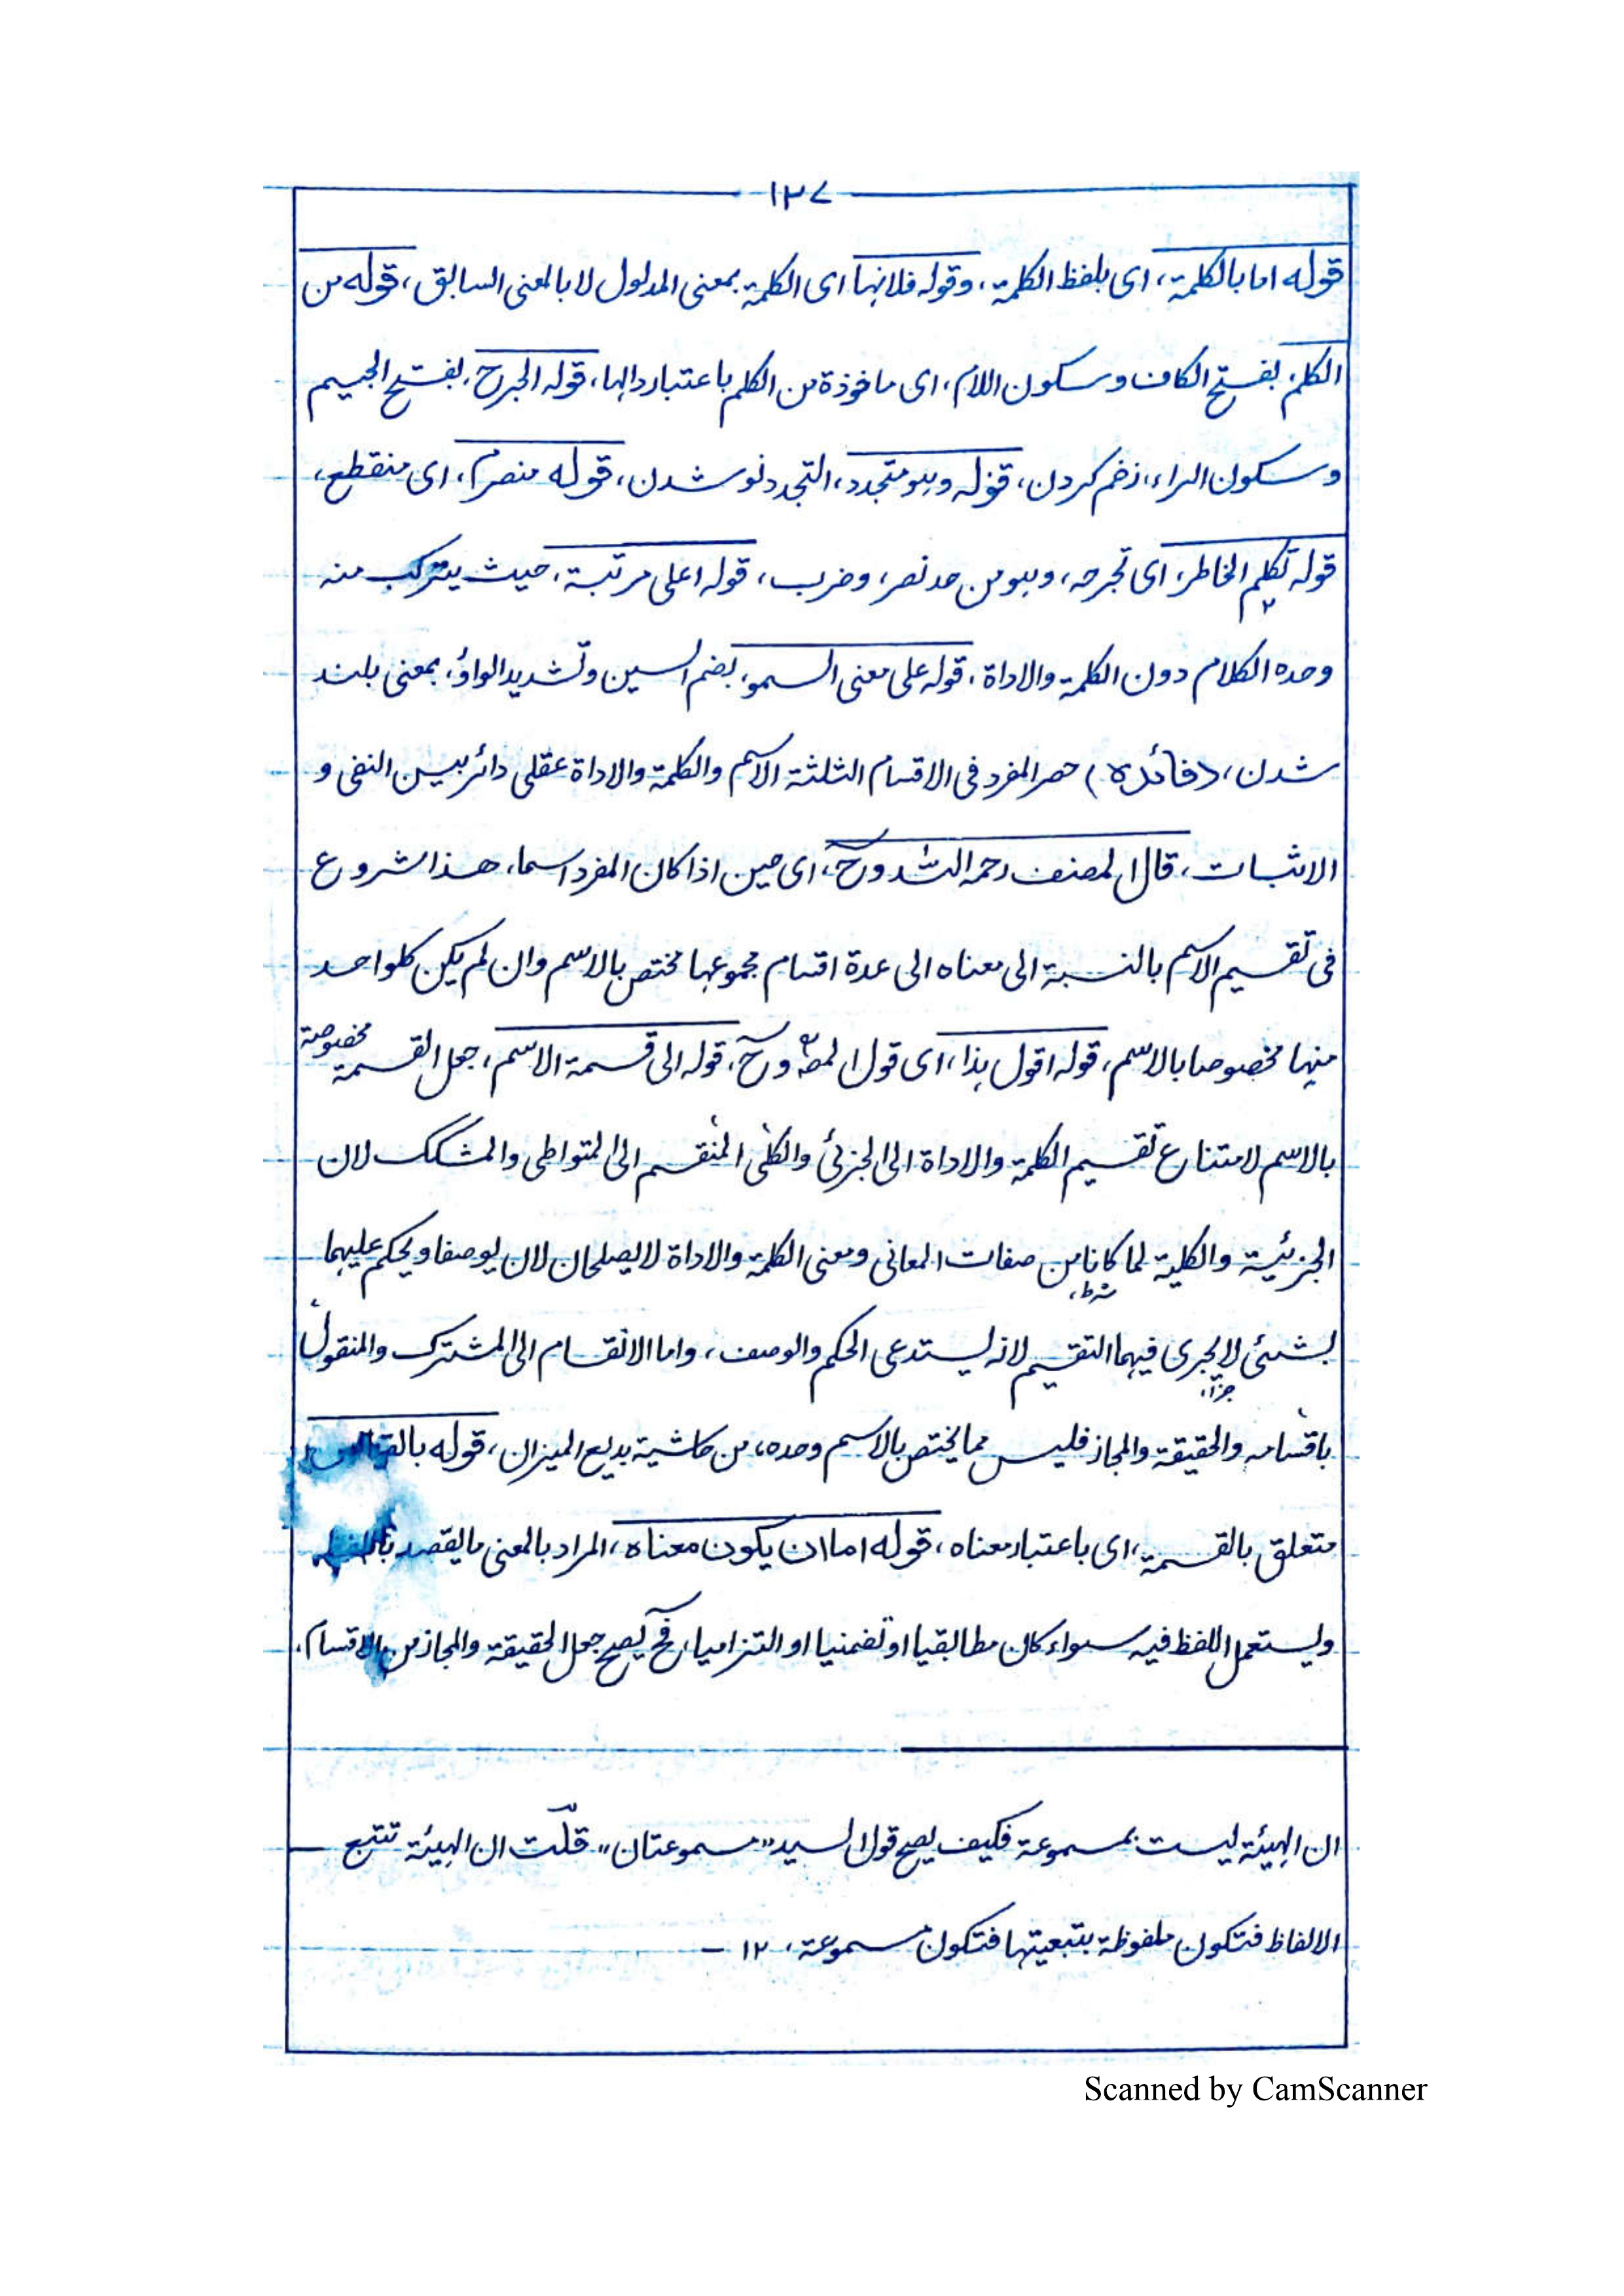 ١٣٧
قوله اما بالكلمة، اى بلفظ الكلمة، وقوله فلانها اى الكلمة بمعنى المدلول لا بالمعنى السابق، قوله من
الكلم، بفتح الكاف وسكون اللام، اى ماخوذة من الكلم باعتبار دالها، قوله الجرح، بفتح الجيم
وسكون الراء، زخم كردن، قوله وهو متجدد، التجدد نو شدن، قوله منصرم، اى منقطع،
قوله تكلم الخاطر، اى تجرحه، وهو من حد نصر، وضرب، قوله اعلى مرتبة، حيث يتركب منه
وحده الكلام دون الكلمة والاداة، قوله على معنى السمو، بضم السين وتشديد الواؤ، بمعنى بلند
شدن، (فائده) حصر المفرد فى الاقسام الثلثة الاسم والكلمة والاداة عقلى دائر بين النفى و
الاثبات، قال المصنف رحمه الله وح، اى حين اذا كان المفرد اسما، هذا شروع
فى تقسيم الاسم بالنسبة الى معناه الى عدة اقسام مجموعها مختص بالاسم وان لم يكن كلواحد
منها مخصوصا بالاسم، قوله اقول هذا، اى قول المصـ وح، قوله الى قسمة الاسم، جعل القسمة مخصوصة
بالاسم لامتناع تقسيم الكلمة والاداة الى الجزئى والكلى المنقسم الى المتواطى والمشكك لان
الجزئية والكلية لما كانا من صفات المعانى ومعنى الكلمة والاداة لا يصلحان لان يوصفا ويحكم عليهما
شرط،
بشئى لا يجرى فيهما التقسيم لانه يستدعى الحكم والوصف، واما الانقسام الى المشترك والمنقول
جزاء،
باقسامه والحقيقة والمجاز فليس مما يختص بالاسم وحده، من حاشية بديع الميزان، قوله
متعلق بالقسمة، اى باعتبار معناه، قوله اما ان يكون معناه، المراد بالمعنى ما يقصد
ويستعمل اللفظ فيه سواء كان مطابقيا او تضمنيا او التزاميا، فح يصح جعل الحقيقة والمجاز من الاقسام.
ان الهيئة ليست بمسموعة فكيف يصح قول السيد "مسموعتان" قلت ان الهيئة تتبع
الالفاظ فتكون ملفوظة بتبعيتها فتكون مسموعة، ١٢ -
Scanned by CamScanner